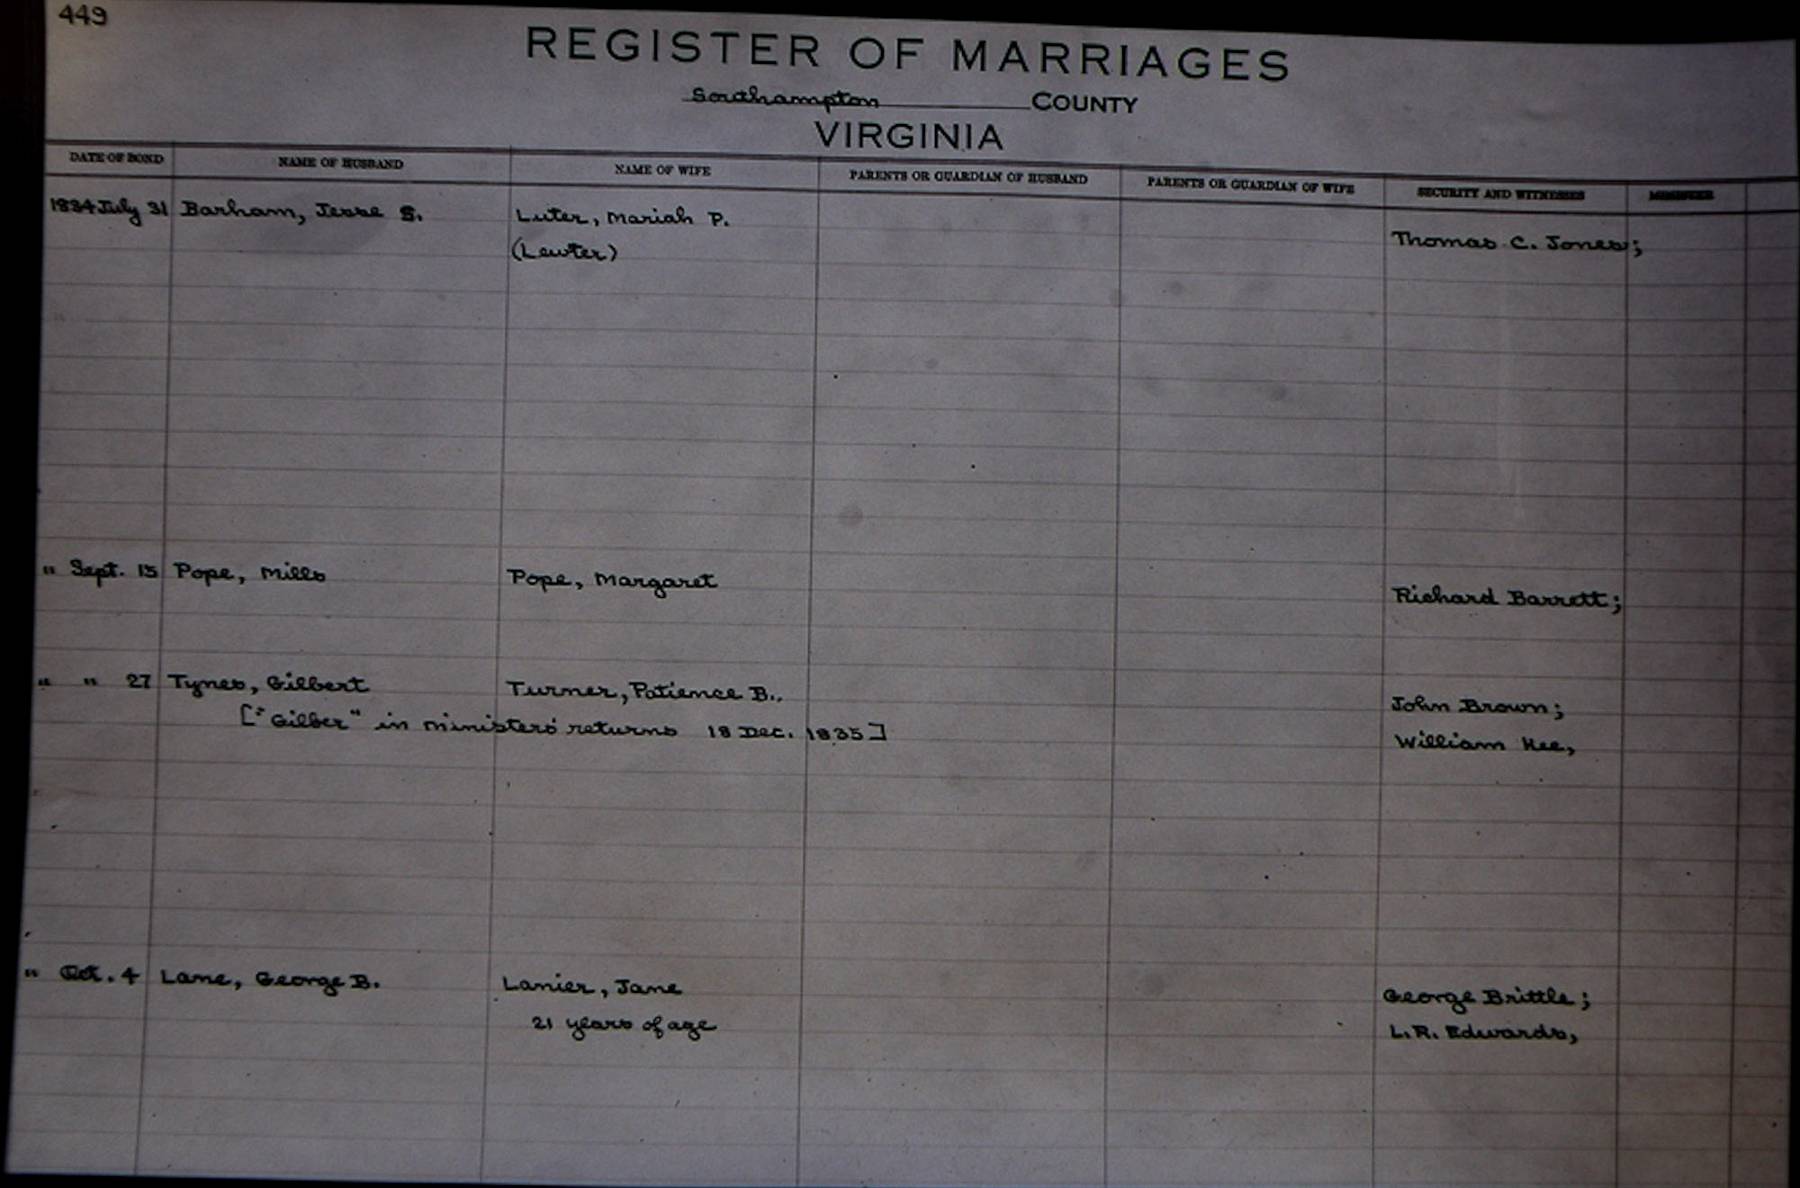 449
REGISTER OF MARRIAGES
Southampton COUNTY
VIRGINIA
DATE OF BOND NAME OF HUSBAND NAME OF WIFE PARENTS OR GUARDIAN OF HUSBAND PARENTS OR GUARDIAN OF WIFE SECURITY AND WITNESSES MINISTER
1834 July 31 Barham, Jesse S. Luter, Mariah P.
(Lewter) Thomas C. Jones;
" Sept. 15 Pope, Mills Pope, Margaret Richard Barrett;
" " 27 Tynes, Gilbert Turner, Patience B., John Brown;
["Gilber" in ministers' returns 18 Dec. 1835] William Kee,
" Oct. 4 Lane, George B. Lanier, Jane George Brittle;
21 years of age L.R. Edwards,